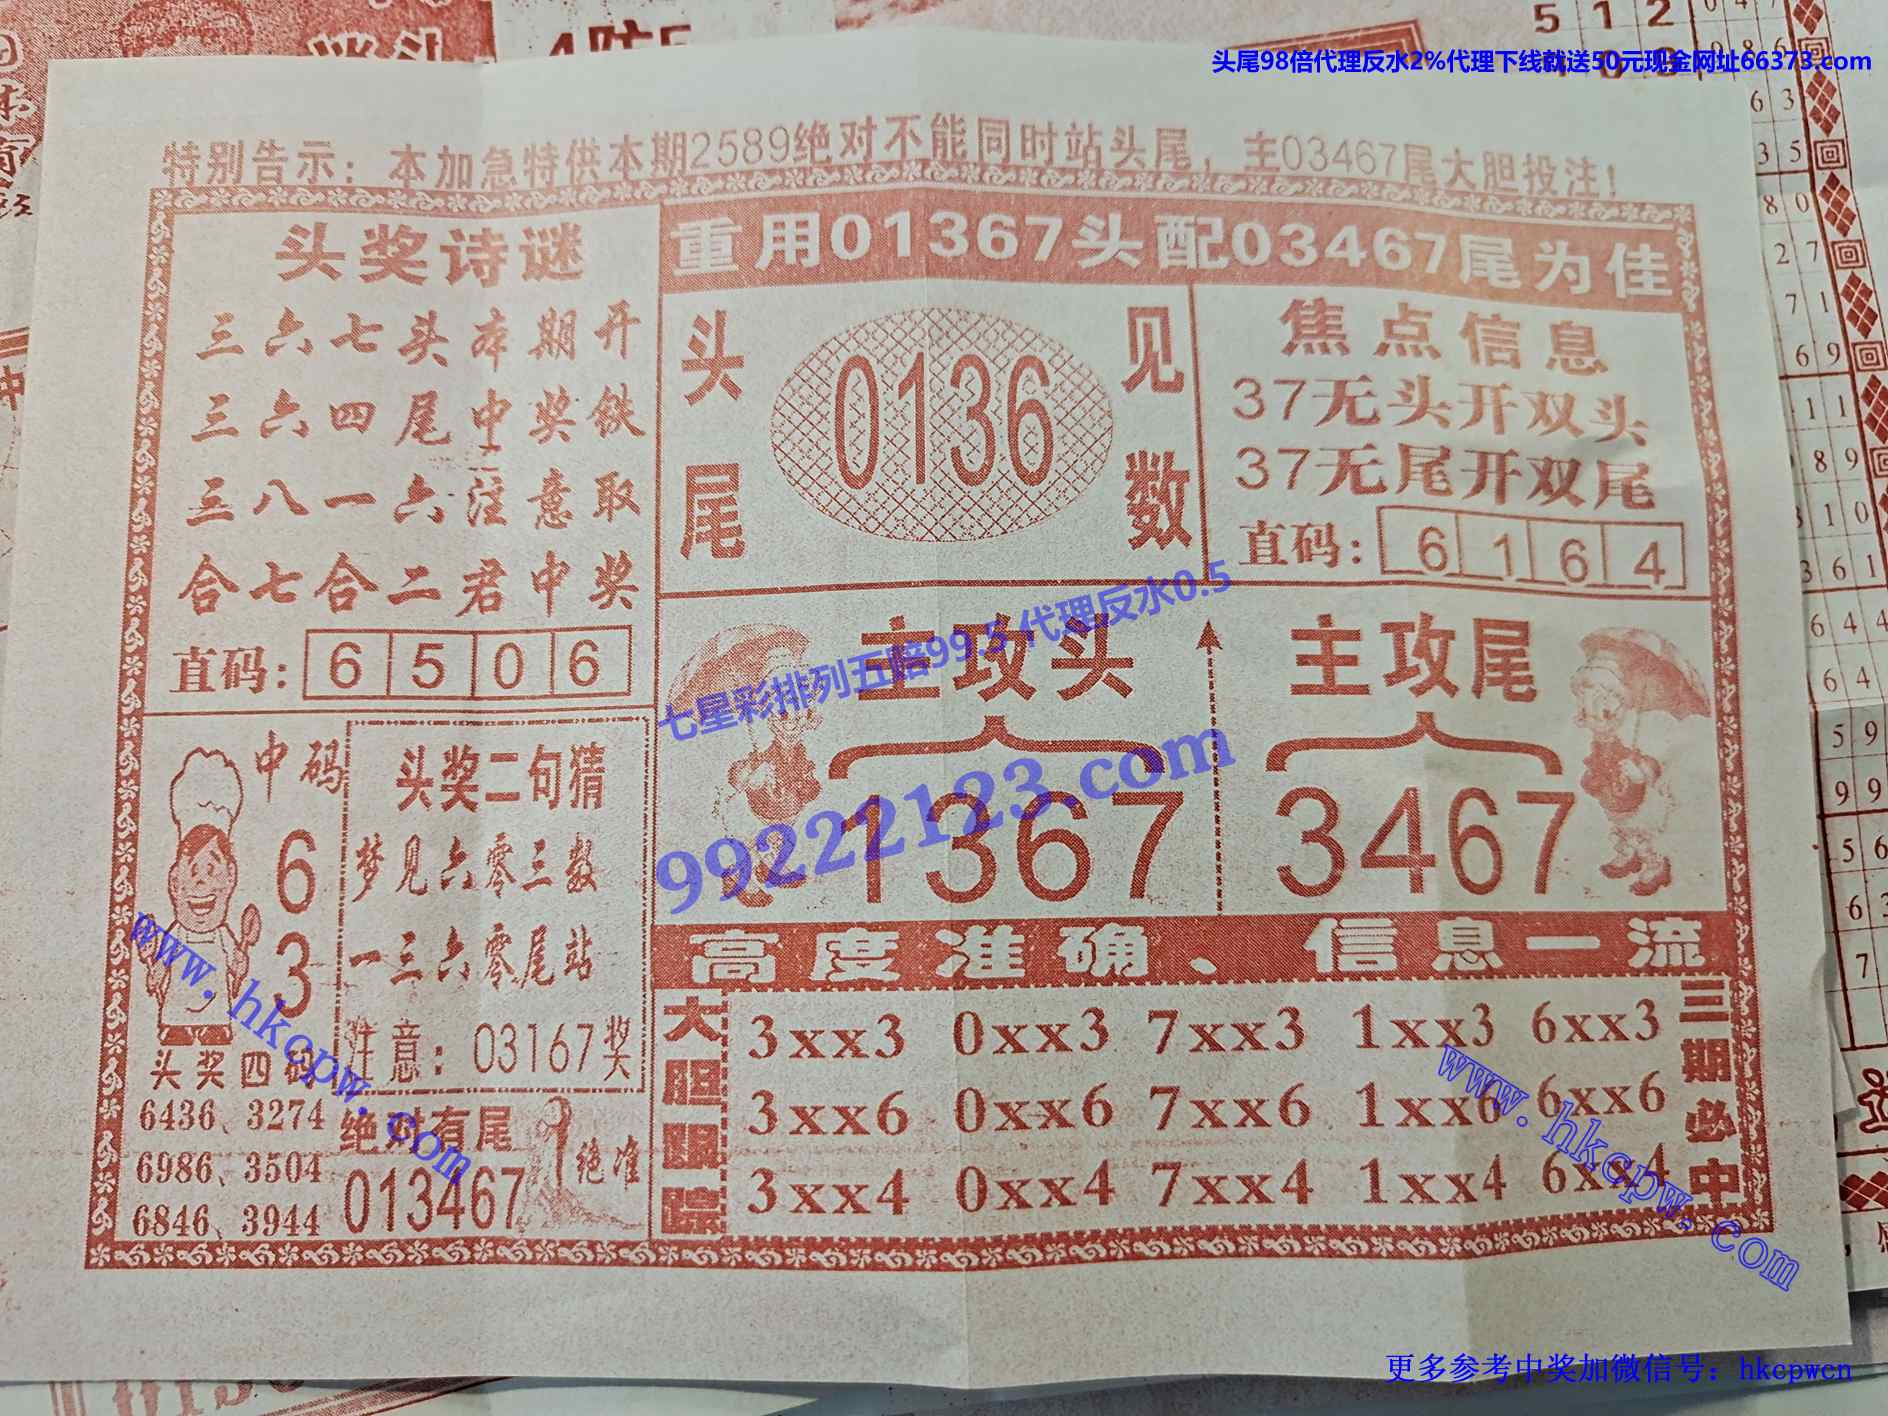 头尾98倍代理反水2%代理下线就送50元现金网址66373.com
特别告示：本加急特供本期2589绝对不能同时站头尾，主03467尾大胆投注！
头奖诗谜
三六七头本期开
三六四尾中奖铁
三八一六注意取
合七合二君中奖
直码：6506
重用01367头配03467尾为佳
头尾
0136
见数
焦点信息
37无头开双头
37无尾开双尾
直码：6164
七星彩排列五赔99.5 代理反水0.5
99222123.com
主攻头
1367
主攻尾
3467
中码
6
3
头奖四码
6436、3274
6986、3504
6846、3944
头奖二句猜
梦见六零三数
一三六零尾站
注意：03167奖
绝对有尾
013467
绝准
高度准确、信息一流
大胆跟踪
3xx3 0xx3 7xx3 1xx3 6xx3
3xx6 0xx6 7xx6 1xx6 6xx6
3xx4 0xx4 7xx4 1xx4 6xx4
三期必中
www.hkcpw.com
www.hkcpw.com
更多参考中奖加微信号：hkcpwcn